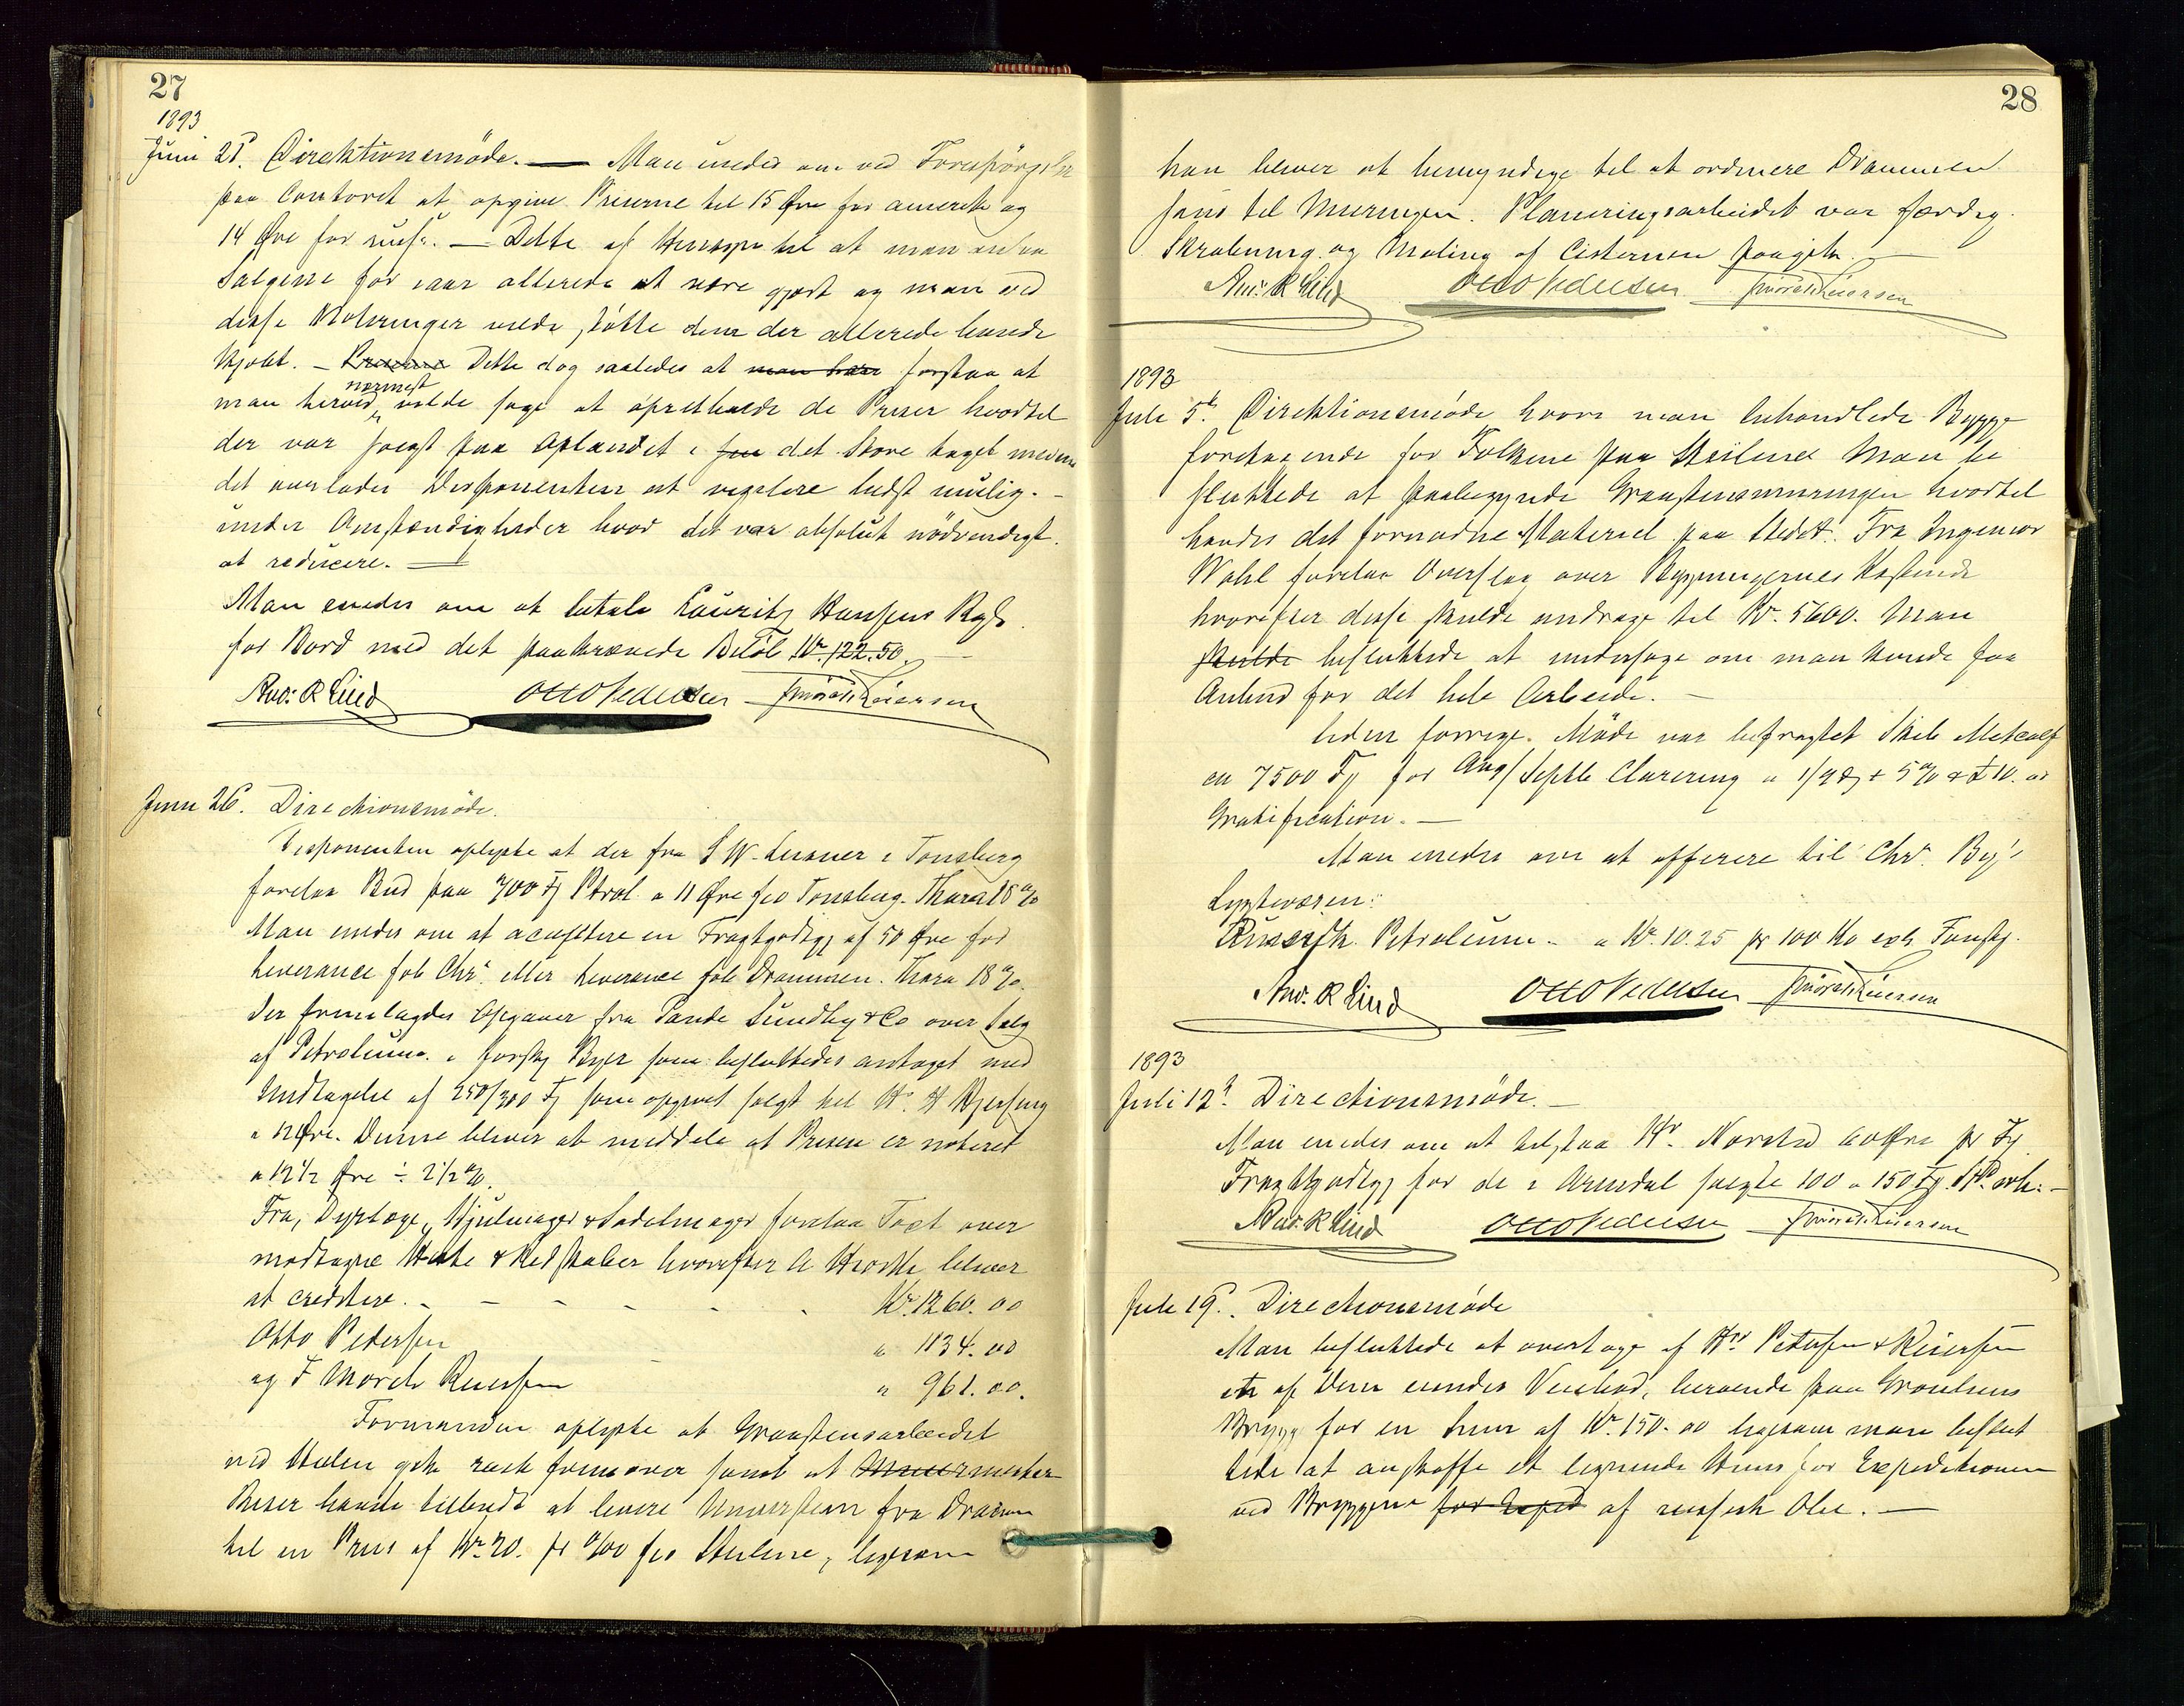 27
1893
Juni 21. Direktionsmöde. — Man enedes om ved Forespörgsler
paa Contoret at opgive Priserne til 15 Øre for amerik og
14 Øre for russ. — Dette af Hensyn til at man ansaa
Salgene for iaar allerede at være gjort og man ved
disse Noteringer vilde støtte dem der allerede havde
kjöbt. — Dette dog saaledes at man har forstaa at
man herved nærmest vilde søge at opretholde de Priser hvortil
der var solgt paa Oplandet i det store taget medens
det overlades Disponenten at regulere bedst mulig.
under Omstændigheder hvor det var absolut nödvendigt
at reducere. —
Man enedes om at betale Lauritz Hansens Regn.
for Bord med det paakrævede Belöb Kr. 122.50. —
And: R Lind Otto Pedersen J Mørch Reiersen
Juni 26. Directionsmöde.
Disponenten oplyste at der fra S W. i Tonsberg
forelaa Bud paa 700 Fj Petrol. a 11 Øre fco Tonsberg. Thara 18 %
Man enedes om at acceptere en Fragtgodtgj af 50 Øre for
Leverance fob Chra. eller Leverance fob Drammen. Thara 18 %.
Der fremlagdes Opgaver fra Sande Sundby & Co over Salg
af Petroleum i forskj Byer som besluttedes antaget med
Undtagelse af 250/300 Fj som opgivet solgt til Hr. H
a 12 Øre. Denne bliver at meddele at Prisen er noteret
a 12 1/2 Øre ÷ 2 1/2 %.
Fra Dyrlæge, Hjulmager & Sadelmager forelaa Taxt over
modtagne Heste & Redskaber hvorefter A bliver
at creditere. - - - - - - Kr. 1260.00
Otto Pedersen " 1134.00
og F Mørch Reiersen " 961.00.
Formanden oplyste at Graastensarbeidet
ved Stalen gik rask fremover samt at Muurmester
havde tilbudt at levere Muursten fra Dramm
til en Pris af Kr. 20. pr 0/00 fco Steilene, ligesom
28
han bliver at bemyndige til at ordinere Drammen
sand til Muringen. Planeringsarbeidet var færdig.
Skrabning og Maling af Cisternen paagik. —
And: R Lind Otto Pedersen J Mørch Reiersen
1893
Juli 5t. Direktionsmöde hvor man behandlede Bygge
foretagende for Folkene paa Steilene Man be
sluttede at paabegynde Graastensmuringen hvortil
haves det fornødne Materiel paa Stedet. Fra Ingeniør
Wahl forelaa Overslag over Bygningernes Kostende
hvorefter disse skulde andrage til Kr. 5600. Man
skulde besluttede at undersøge om man kunde faa
Anbud for det hele Arbeide. —
Siden forrige Møde var befragtet Skib Metcalf
ca 7500 Fj for Aug/Septb Clarering a 1/9 d + 5 % & £ 10. as
Gratification. —
Man enedes om at offerere til Chra. By's
Lygtevæsen:
Russisk Petroleum - a Kr. 10.25 pr 100 Ko exl Fustg.
And. R Lind Otto Pedersen J Mørch Reiersen
1893
Juli 12t. Directionsmöde. —
Man enedes om at tilstaa Hr. Norsted 60 Øre pr Fj
Fragtgodtgj for de i Arendal solgte 100 a 150 Fj.
And: R Lind Otto Pedersen J Mørch Reiersen
Juli 19. Directionsmöde
Man besluttede at overtage af Hrr Petersen & Reiersen
et af dem eiendes, beroende paa Grønlands
Brygge for en Sum af Kr. 150.00 ligesom man beslut
tede at anskaffe et lignende Huus for Expeditionen
ved Bryggene for Exped af russisk Olie. —